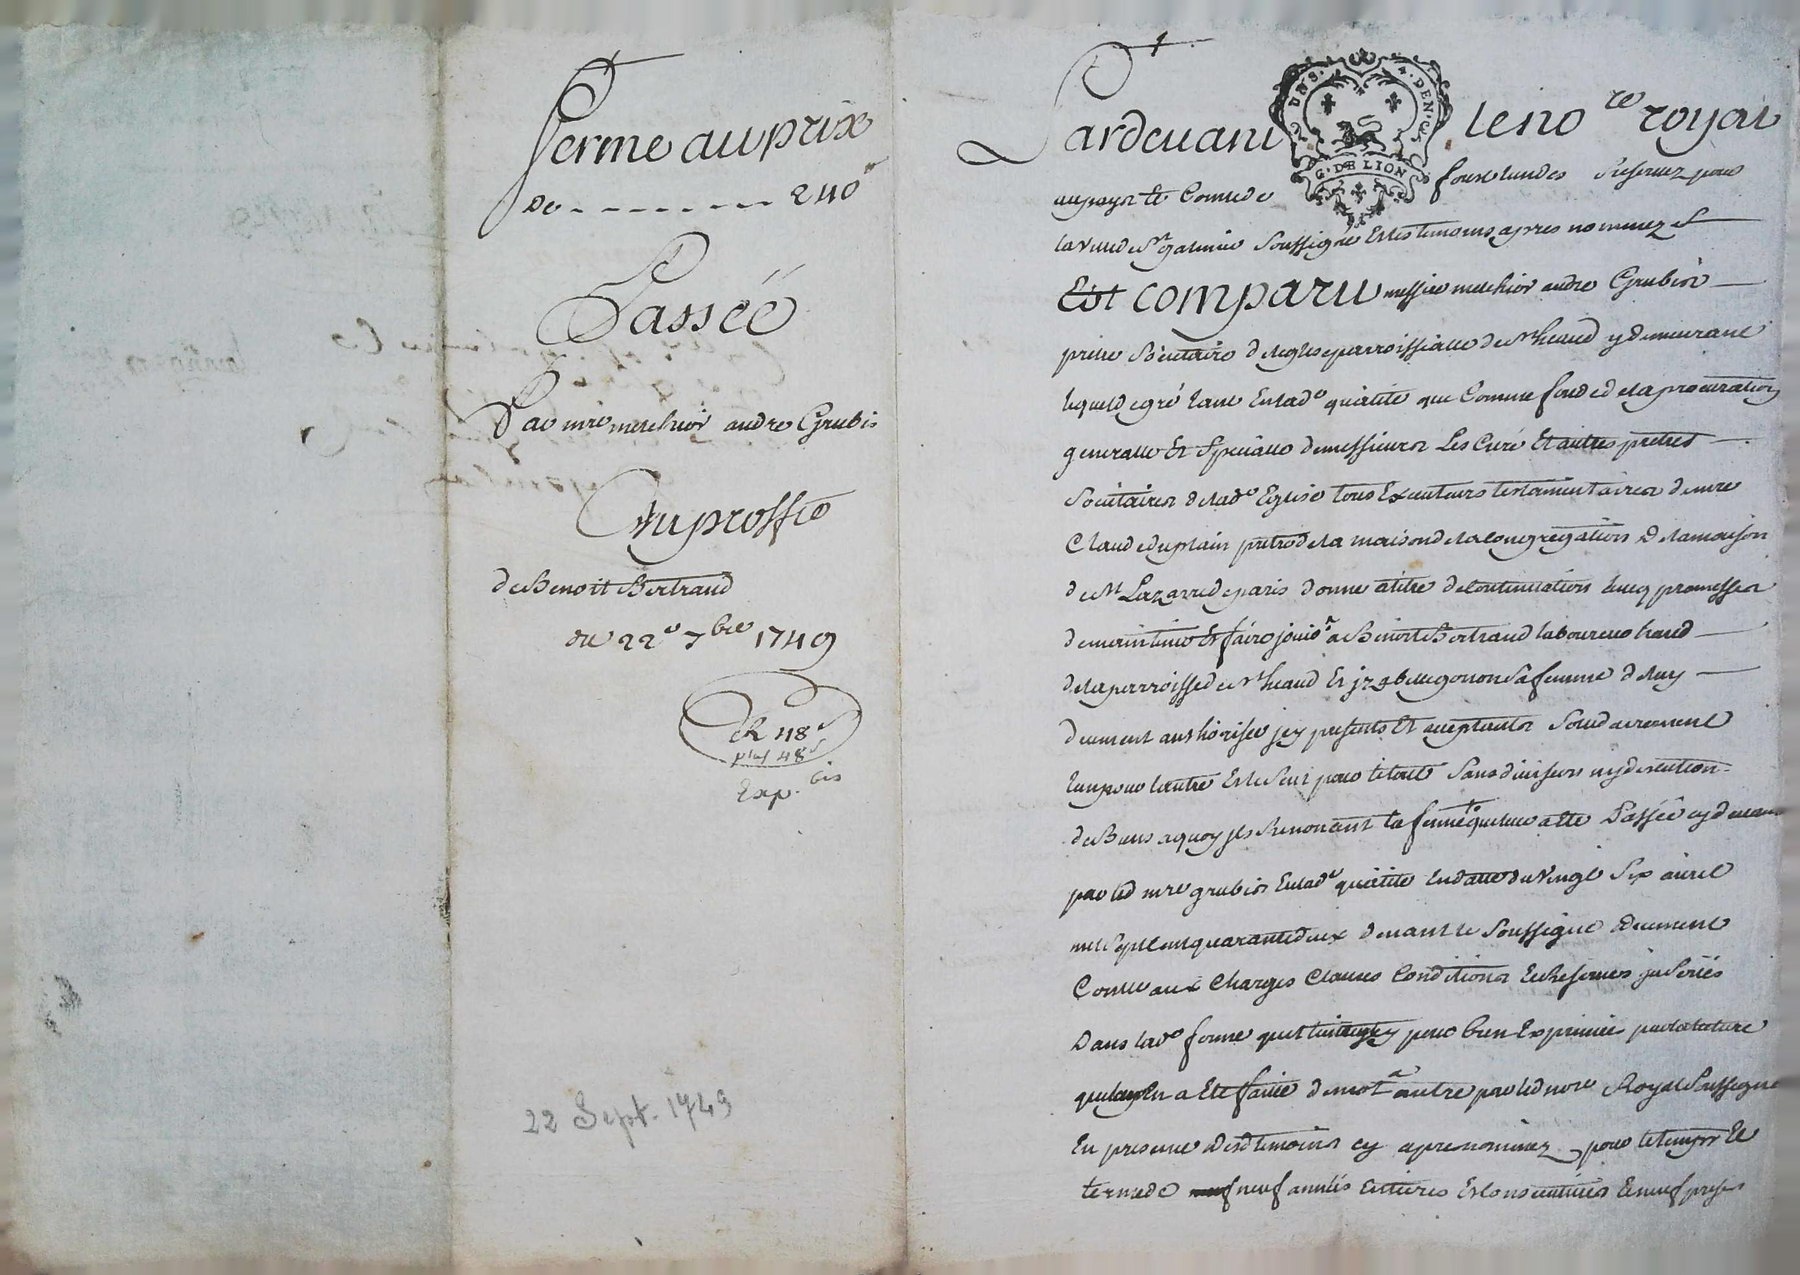 Ferme au prix
De - - - - - - - - 240ᵗ
Passéé
Par mre melchior andre Grubis
Au proffit
de Benoit Bertrand
du 22e 7bre 1749
48s
48s
Exp. bis
22 Sept. 1749
Pardevant le nore royal
au pays et Comté de foret reservez pour
la ville de St galmier soussigné et les temoins apres nommez
Est comparu messire melchior andre Grubis
pretre Societaire de leglise parroissialle de St heand y demeurant
lequel de gré tant en lade qualité que Comme fondé de la procuration
generalle Et Specialle de messieurs Les Curé Et autres pretres
Societaires de lade Eglise tous Executeurs testamentaires de mre
Claude duplain pretre de la maison de la Congregation de la maison
de St Lazarre de paris donne a titre de Continuation avec promesse
de maintenir Et faire jouir a Benoit Bertrand laboureur
de la parroisse de St heand Et gonon Sa femme de luy
duement authorisée jcy presents Et acceptants Solidairement
lun pour lautre Et le Seul pour le tout Sans division ny discution
de Biens a quoy jls Renoncent la ferme qui leur a été Passée cy devant
par led mre grubis en lade qualité en datte du vingt Six avril
mil Sept cent quarante deux devant le Soussigné duement
Conlle aux Charges Clauses Conditions Et Reserves jnserées
Dans lade ferme pour bien Exprimée par la lecture
qui leur en a été faitte de mot a autre par led nore Royal Soussigné
En presence desd temoins cy apres nommez pour le temps Et
terme de neuf années entieres Et consecutives Et neuf prises